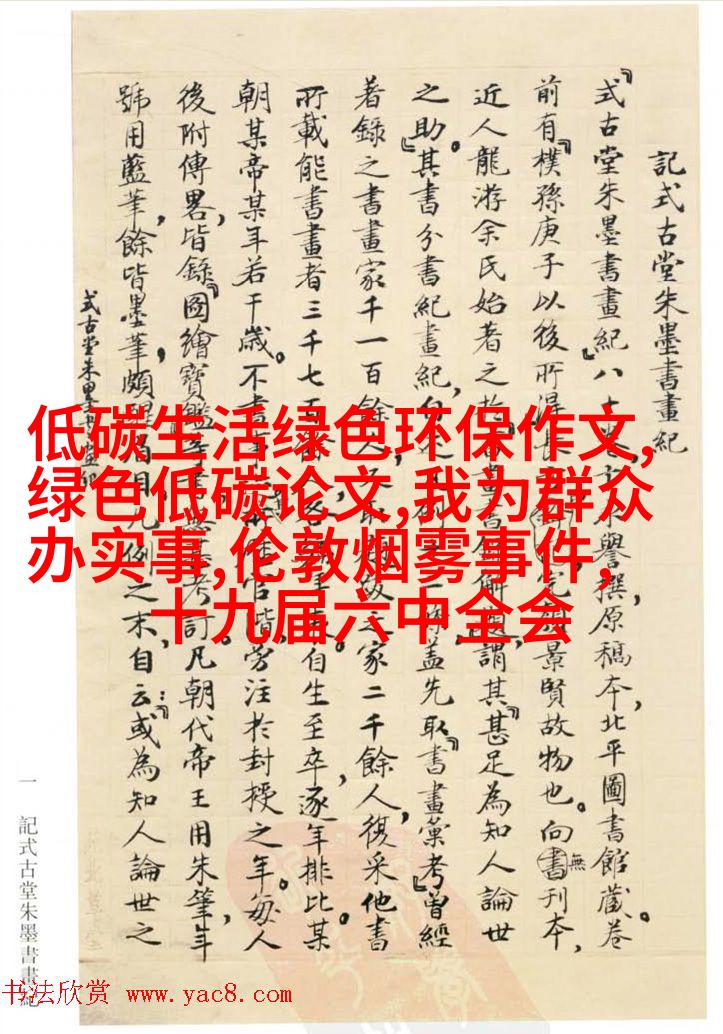 記式古堂朱墨書畫紀
『式古堂朱墨書畫紀』八十卷,
譽撰,原稿本,北平圖書館藏。卷
前有『樸孫庚子以後所得長
景賢故物也。向無書刊本,
近人龍游余氏始著之於
謂其『甚足為知人論世
之助』。其書分書紀畫紀,
蓋先取『書畫彙考』曾經
著錄之書畫家千一百餘人,
之家二千餘人,復采他書
所載能書畫者三千七百餘人,
自生至卒,逐年排比,某
朝某帝某年若干歲。不書
旁注於封授之年。每人
後附傳畧,皆錄『圖繪寶鑑
考訂。凡朝代帝王用朱筆,年
號用藍筆,餘皆墨筆,頗醒眉目。凡例之末,自云:『或為知人論世之
式古堂朱墨書畫紀
一
記式古堂朱墨書畫紀
低碳生活绿色环保作文,
绿色低碳论文,我为群众
办实事,伦敦烟雾事件,
十九届六中全会
书法欣赏 www.yac8.com